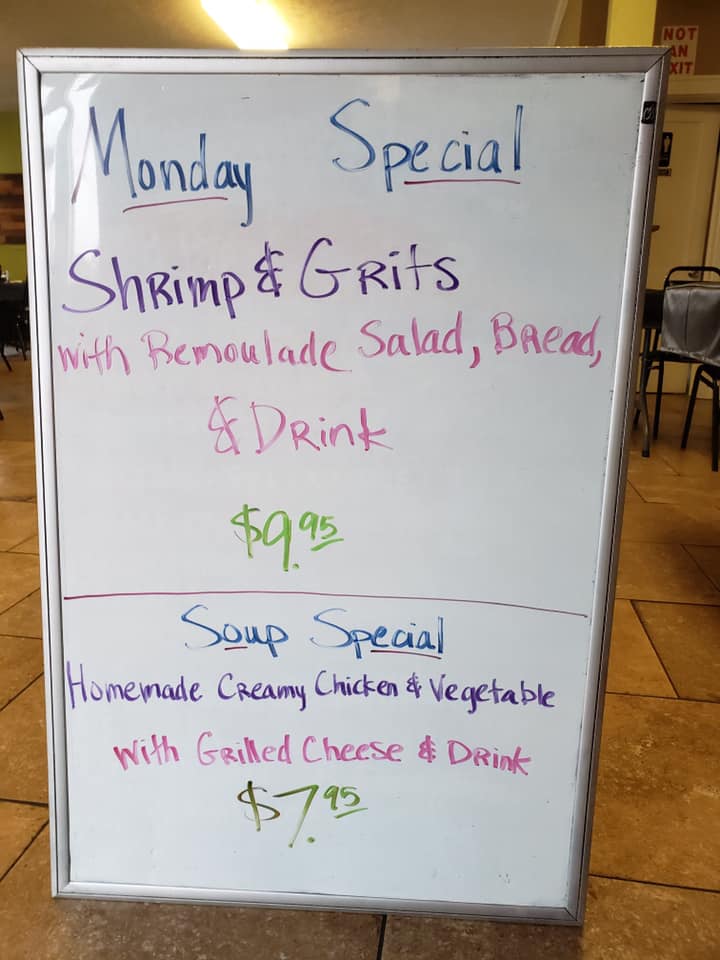 Monday Special
Shrimp & Grits
with Remoulade Salad, Bread,
& Drink
$9.95
Soup Special
Homemade Creamy Chicken & Vegetable
with Grilled Cheese & Drink
$7.95
NOT
AN
EXIT